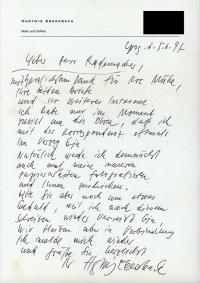 HARTWIG EBERSBACH
Maler und Grafiker
Lpzg. d. 5.6.97
Lieber Herr Rademacher,
herzlichsten Dank für Ihre Mühe,
Ihre beiden Briefe
und Ihr weiteres Interesse
Ich habe nur im Moment
zuviel um die Ohren, daß ich
mit der Korrespondenz oftmals
im Verzug bin.
Natürlich werde ich demnächst
auch mal meine neueren
fotografieren
und Ihnen zuschicken.
Bitte Sie aber noch um etwas
Geduld, weil ich nach diesem
Schreiben wieder verreist bin.
Wir bleiben aber in Verbindung
Ich melde mich wieder
und grüße Sie herzlichst
Ihr Hartwig Ebersbach